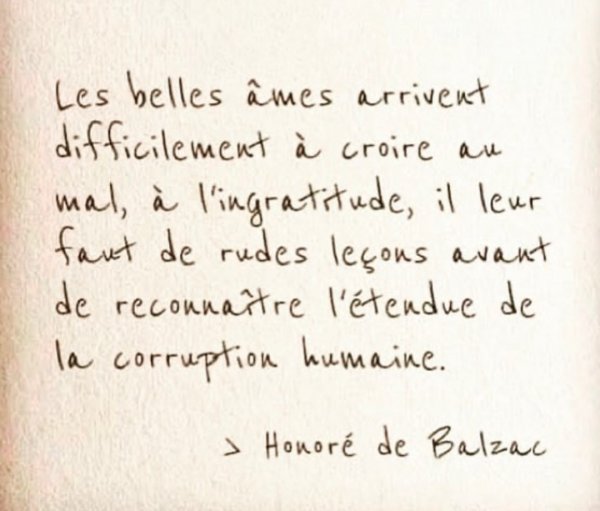 Les belles âmes arrivent
difficilement à croire au
mal, à l'ingratitude, il leur
faut de rudes leçons avant
de reconnaître l'étendue de
la corruption humaine.
> Honoré de Balzac